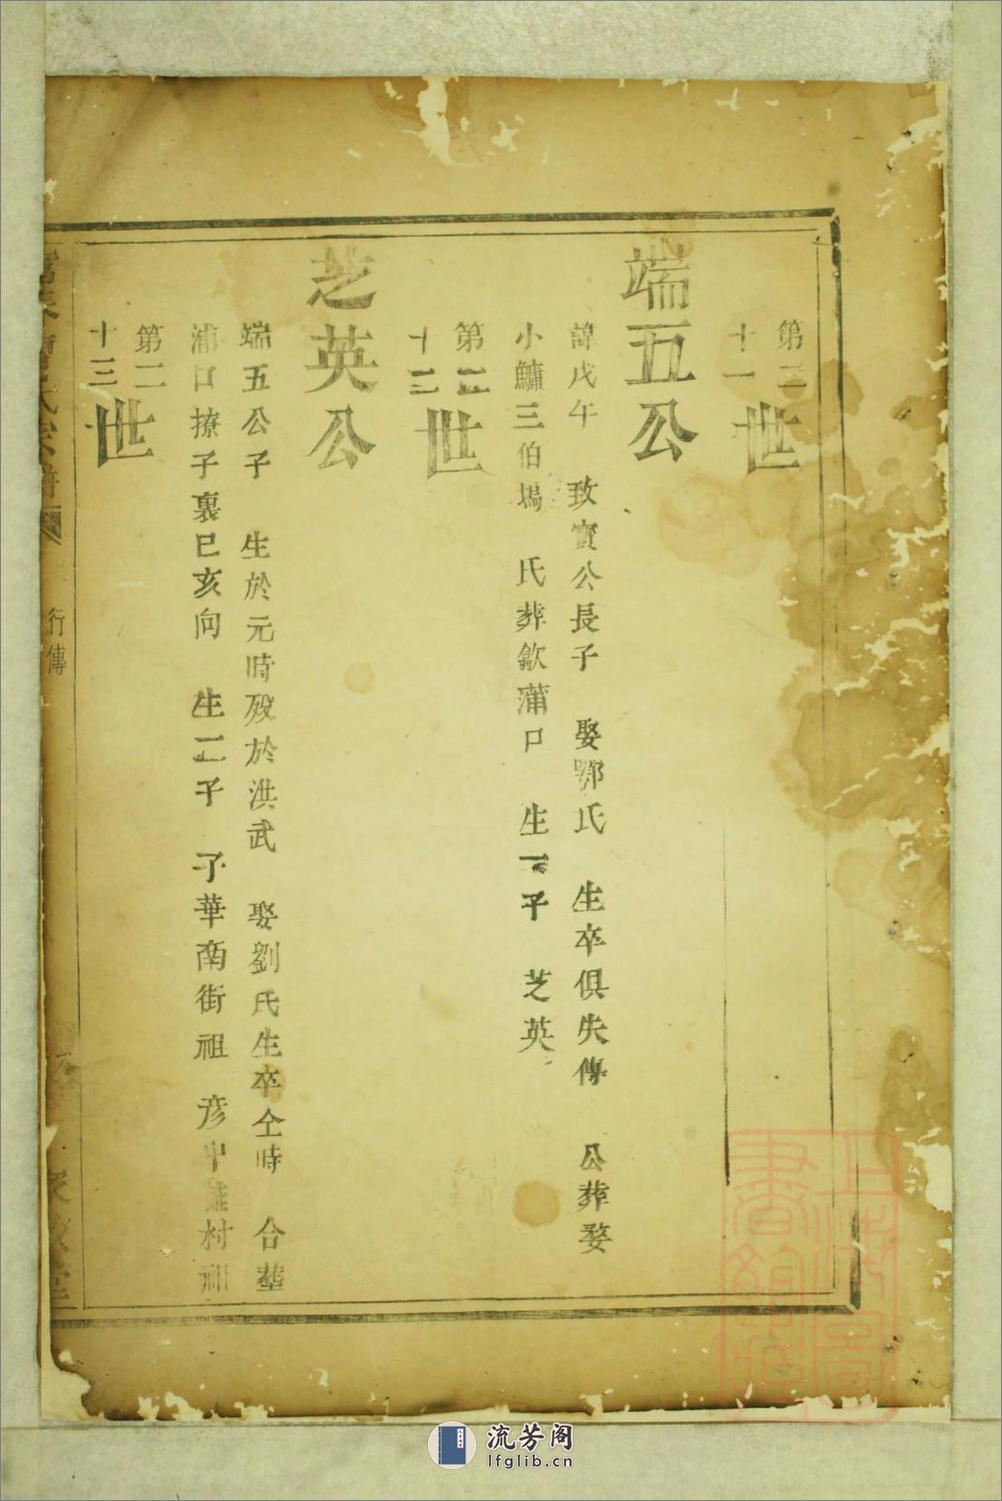 第二十一世
端五公
諱戊午 致實公長子 娶鄂氏 生卒俱失傳 公葬婺
小鱅三伯塢 氏葬歙蒲口 生一子 芝英
第二十二世
芝英公
端五公子 生於元時歿於洪武 娶劉氏生卒仝時 合塟
浦口撩子裏巳亥向 生二子 子華南街祖 彦中 村祖
第二十三世
氏宗譜 行傳 堂
上海圖書館藏
流芳阁
lfglib.cn